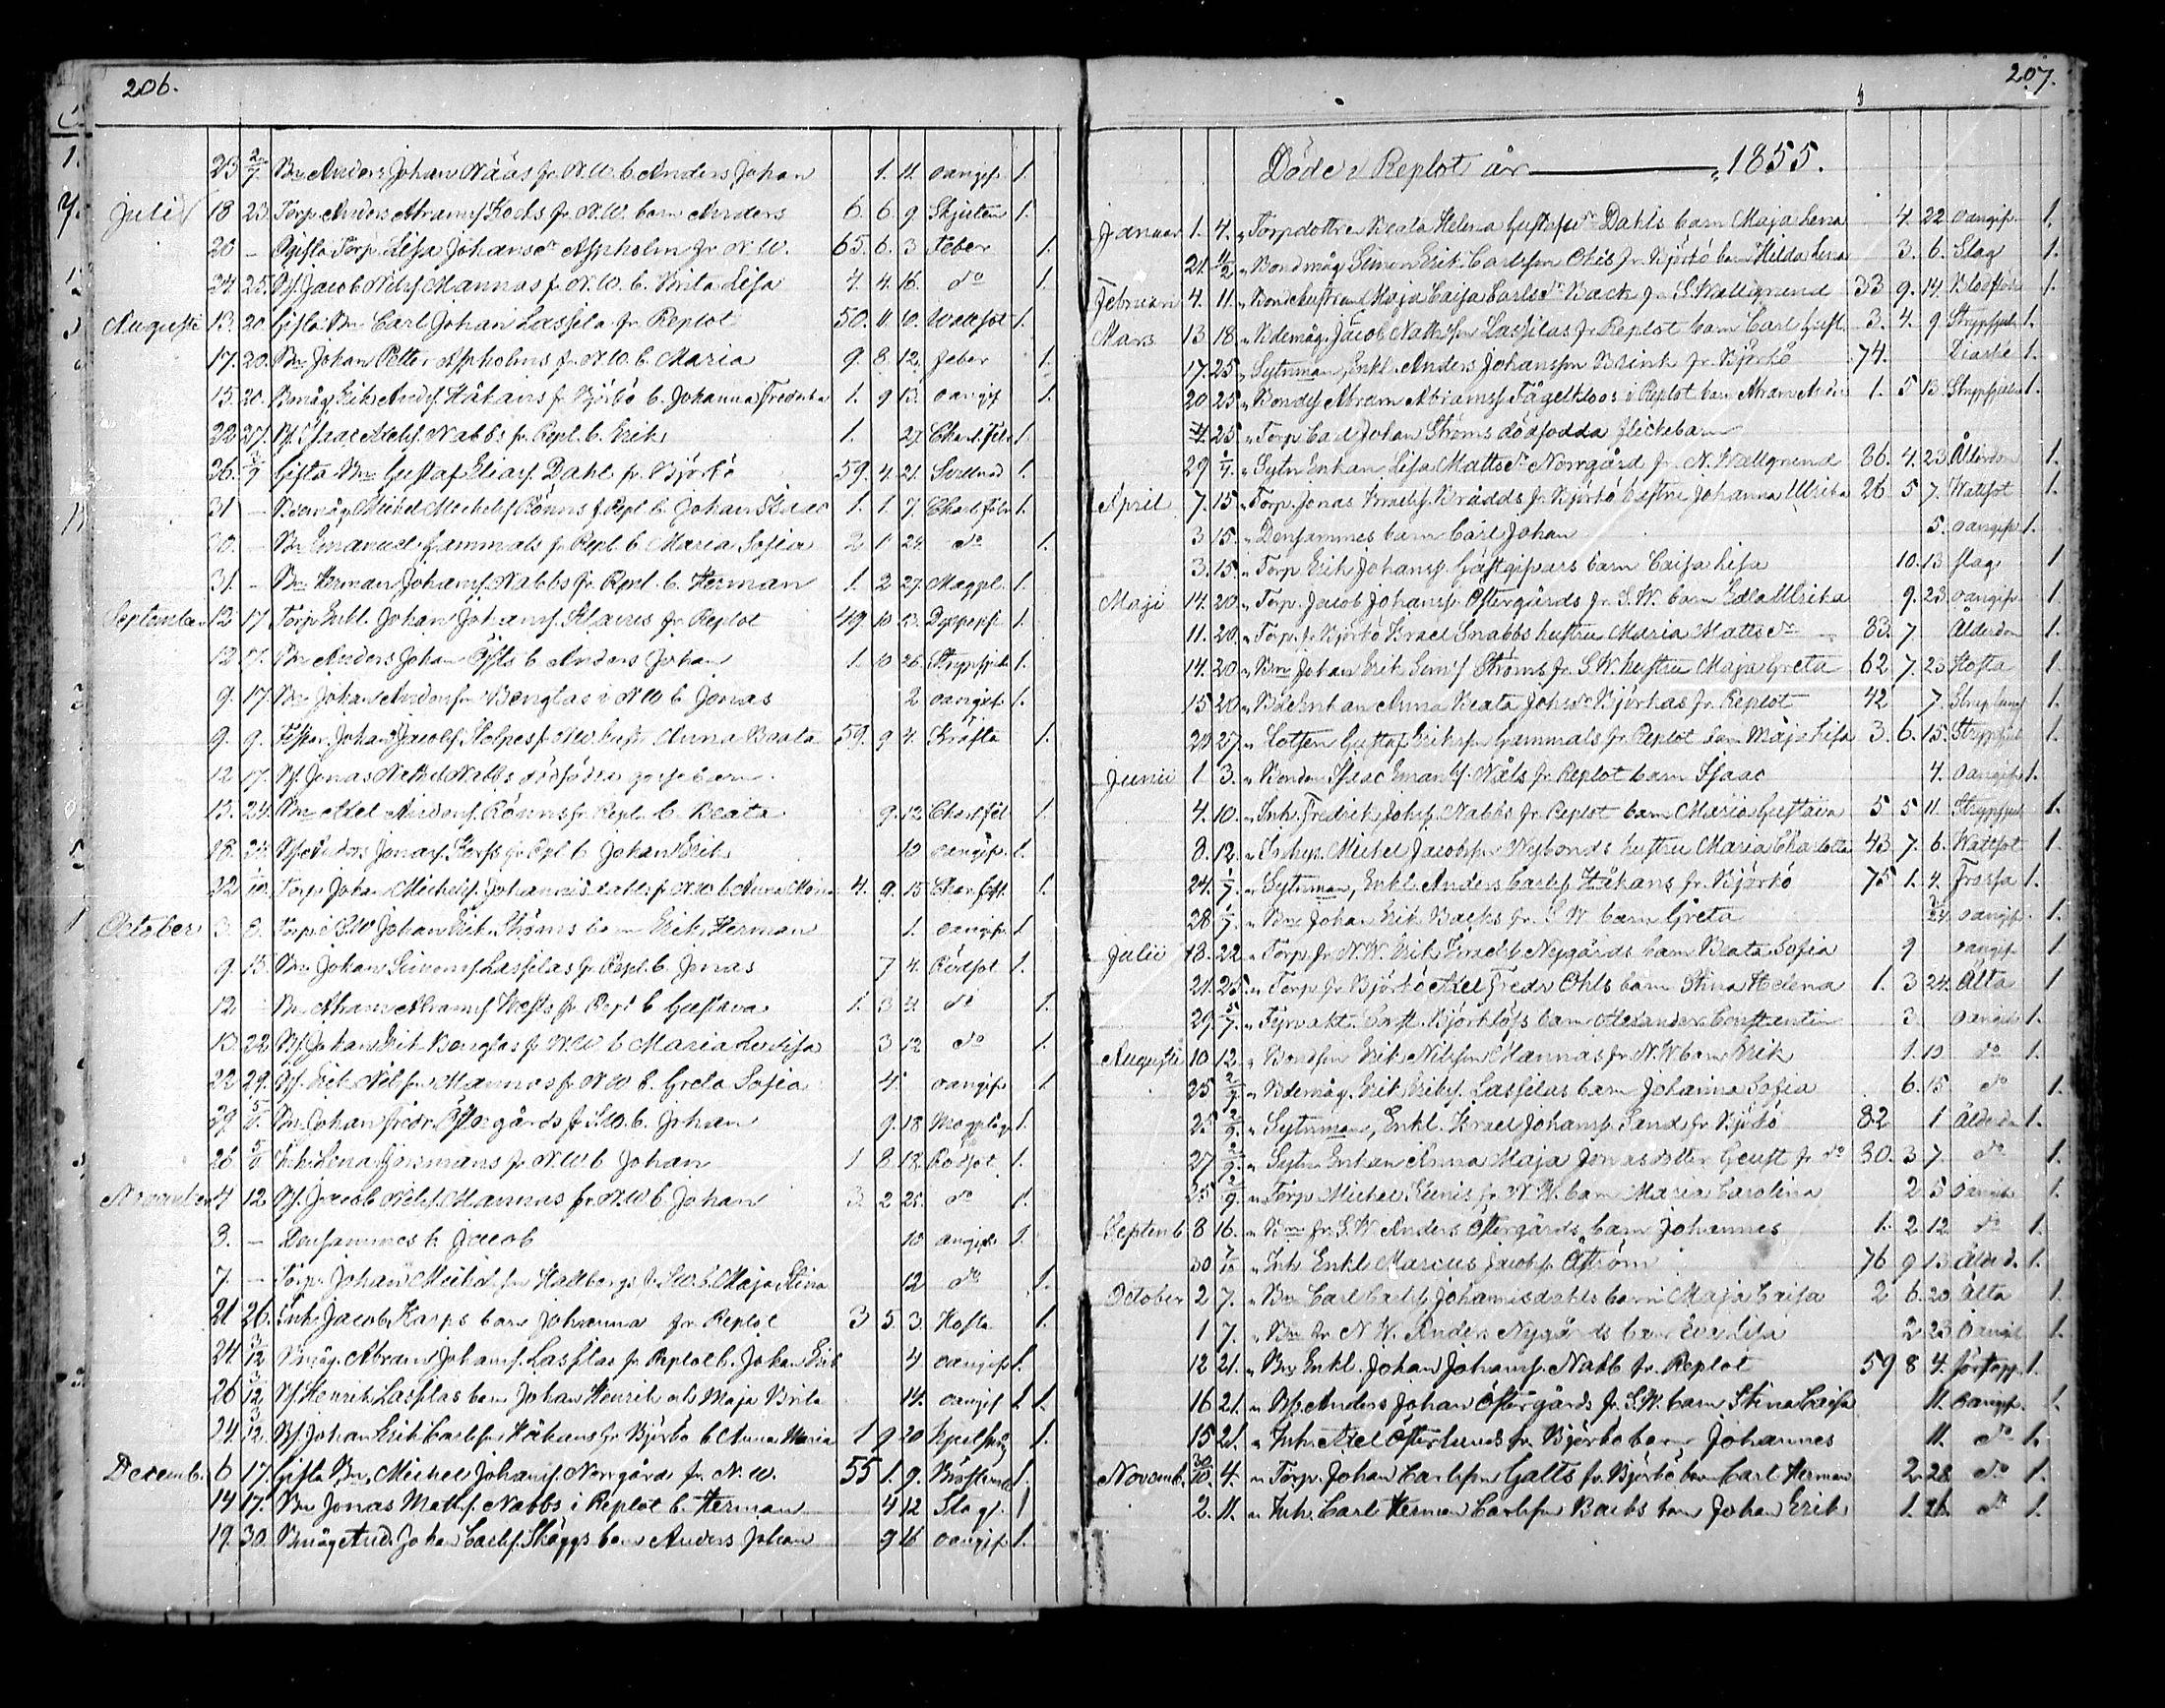 206.
23 2/7. Bn Anders Johan Nääs fr. N.W. b. Anders Johan 1. 11. oangif. 1.
Julii 18 23. Torp. Anders Abrams. Kocks fr. N.W. barn Anders 6. 6. 9. Skjuten 1.
20 – Ogifta Torp. Lisa Johansdr Aspholm fr. N.W. 65. 6. 3 Feber 1.
24 25. Bs. Jacob Nels. Mannas fr. N.W. b. Brita Lisa 4. 4. 16. do 1.
Augusti 13. 20. Gifta Bn Carl Johan Lassila fr. Replot 50. 11. 10. Wattsot 1.
17. 20. Bn Johan Petter Aspholms fr. N.W. b. Maria 9. 8. 12. feber 1.
15. 20. Bmåg Erik Anders. Håkans fr. Björkö b. Johanna Fredrika 1. 9 13. oangif 1.
22 27. Bs. Isaac Abels. Nabbs fr. Repl. b. Erik 1. 27.
26. 2/9 Gifta Bn Gustaf Elias. Dahl fr. Björkö 59. 4. 21. 1.
31 – Bdemåg Michel Michels. Rönns fr. Repl. b. Johan Isaac 1. 1. 7. 1.
20. – Bn Emanuel Gammals fr. Repl. b. Maria Sofia 2 1 24. do 1.
31. – Bn Herman Johans. Nabbs fr. Repl. b. Herman 1. 2 27. Magpl. 1.
September 12 17. Torp Enkl. Johan Johans. fr Replot 49 10 1.
12 17. Bn Anders Johan b. Anders Johan 1. 10 26. Strypsjuka 1.
9. 17. Bn Johan Anderssn Benglas i N.W. b. Jonas 2 oangif. 1.
9. 9. Johan Jacobs. fr. N.W. hustr. Anna Beata 59. 9 4. Kräfta 1.
12 17. Bs. Jonas Nabbs dödfödda gossebarn.
13. 24. Bn Abel Anders. Rönns fr. Repl. b. Beata 9. 12 1.
18. 24. Anders Jonas. fr. Repl. b. Johan Erik 10 oangif. 1.
22 1/10. Torp. Johan Michels. Johannisdahls fr. N.W. b. Anna Maria 4. 9. 15 1.
October 3. 8. Torp. i S.W. Johan Erik Ströms barn Erik Herman 1. oangif. 1
9. 15. Bn Johan Simons. Lassilas fr. Repl. b. Jonas 7 4. Rödsot 1.
12 Bn Abram Abrams. fr. Repl. b. Gustava 1. 3 4. do 1.
13. 22 Bs. Johan Erik Benglas fr. N.W. b. Maria Lovisa 3 12 do 1.
22 29. Bs. Erik Nelssn Mannas fr. N.W. b. Greta Sofia 4. oangif. 1
29 Bn Johan Fredr. Östergårds fr. S.W. b. Johan 9. 18. Magplåg. 1.
26 Inh. Lena fr. N.W. b. Johan 1 8. 18. Rödsot 1.
November 4 12 Bs. Jacob Nels. Mannas fr. N.W. b. Johan 3. 2 25. do 1.
3. – Densammes b. Jacob 10 oangif. 1.
7. – Torp. Johan Michelssn Hallbergs fr. S.W. b. Maja Stina 12 do 1.
21 26. Inh. Jacob Karps barn Johanna fr. Replot 3 5 3. Hosta 1.
24 3/12 Bmåg. Abram Johans. Lassilas fr. Replot b. Johan Erik 4 oangif. 1.
26 3/12 Bs. Henrik Lassilas barn Johan Henrik och Maja Brita 14. oangif 1. 1.
24. 3/12. Bs. Johan Erik Carlssn Håkans fr. Björkö b. Anna Maria 1 9 20 1.
Decemb. 6 17. Gifta Bn Michel Johans. Norrgård fr. N.W. 55 1. 9. 1.
14 17. Bn Jonas Matts. Nabbs i Replot b. Herman 4 12 Slag. 1
19. 30. Bmåg And. Johan Carls. Skäggs barn Anders Johan 9 16 oangif. 1.
207.
Döde i Replot år 1855.
Januar. 1. 4. Torpdottren Beata Helena Gustafsdr Dahls barn Maja Lena 4. 22 oangif. 1.
21. 4/2. Bondmåg Simon Erik Carlssn fr. Björkö barn Hilda Lena 3. 6. Slag 1.
Februari 4. 11. Bondehustrun Maja Caisa Carlsdr Back fr. S. Wallgrund 33 9. 14. 1.
Mars 13 18. Bdemåg. Jacob Mattssn Lassilas fr. Replot barn Carl Gust. 3. 4. 9 Strypsjuk. 1.
17. 25. Sytnman, Enkl. Anders Johanssn Brink fr. Björkö 74. 1.
20 25. Bonds. Abram Abrams. Fågelkloos i Replot barn Abram 1. 5 13 Strypsjuka 1.
25 Torp. Carl Johan Ströms dödfödda flickebarn
29 Sytn. Enkan Lisa Mattsdr Norrgård fr. N. Wallgrund 86. 4. 23 Ålderdom 1.
April 7. 15. Torp. Jonas Israels. Brådds fr. Björkö hustru Johanna Ulrika 26 5 7. Wattsot 1.
3 15. Densammes barn Carl Johan 5. oangif. 1.
3. 15. Torp Erik Johans. Gästgifvars barn Caisa Lisa 10. 13 slag 1
Maji 14. 20. Torp. Jacob Johans. Östergårds fr. S.W. barn Edla Ulrika 9. 23 oangif. 1
11. 20. Torp. fr. Björkö Israel Snabbs hustru Maria Mattsdr 83. 7 Ålderdom 1.
14. 20 Bn Johan Erik Ströms fr. S.W. hustru Maja Greta 62 7. 23 Hosta 1.
15 20 Bdeenkan Anna Beata Johsdr Björkas fr. Replot 42 7. 1
23 27. Lotsen Gustaf Erikssn Gammals fr. Replot barn Maja Lisa 3. 6. 15. Strypsjuk 1.
Junii 1 3. Bonden Isaac Nåls fr. Replot barn Isaac 4. oangif. 1.
4. 10. Inh. Fredrik Johs. Nabbs fr. Replot barn Maria Gustava 5 5 11. Strypsjuk. 1.
8. 12. Michel Jacobssn Nybonds hustru Maria Charlotta 43 7. 6. Wattsot 1.
24. 1/7. Sytnman, Enkl. Anders Carls. Håkans fr. Björkö 75 1. 4. Frossa 1.
28 1/7. Bn Johan Erik Backs fr. S.W. barn Greta oangif. 1.
Julii 18. 22. Torp. fr. N.W. Erik Israels. Nygårds barn Beata Sofia 9 oangif. 1
21. 25. Torp. fr. Björkö Abel Fredr. Ohls barn Stina Helena 1. 3 24. Älta 1
29 Fyrvakt. Gust. Björklöfs barn Alexander Constantin 3. oangif. 1.
Augusti 10 12. Bondssn Erik Nilssn Mannas fr. N.W. barn Erik 1. 10 do 1.
25 2/9. Bdemåg. Erik Eriks. Lassilas barn Johanna Sofia 6. 15 do 1.
25 2/9. Sytnman, Enkl. Israel Johans. Sand fr. Björkö 82 1 Ålderdom 1.
27 2/9. Sytn. Enkan Anna Maja Jonasdotter Gust fr. do 80. 3 7. do 1.
25 2/9. Torp. Michel fr. N.W. barn Maria Carolina 2 5 oangif. 1.
Septemb. 8 16. Bn fr. S.W. Anders Östergårds barn Johannes 1. 2. 12. do 1.
30 7/10 Inh. Enkl. Marcus Jacobs. Åström 76 9 13 Ålderd. 1.
October 2 7. Bn Carl Carls. Johannisdahls barn Maja Caisa 2 6. 20 Älta 1.
1 7. Bn fr. N.W. Anders Nygårds barn Eva Lisa 2 23 oangif. 1.
12 21. Bn Enkl. Johan Johans. Nabb fr. Replot 59 8 4. förstopp. 1.
16 21. Bs. Anders Johan Östergårds fr. S.W. barn Stina Caisa 11. oangif. 1.
15 21. Inh. Abel Österlunds fr. Björkö barn Johannes 11. do 1.
Novemb. 30/10. 4. Torp. Johan Carlssn Galts fr. Björkö barn Carl Herman 2 28 do 1.
2. 11. Inh. Carl Herman Carlssn Backs barn Johan Erik 1. 26. do 1.